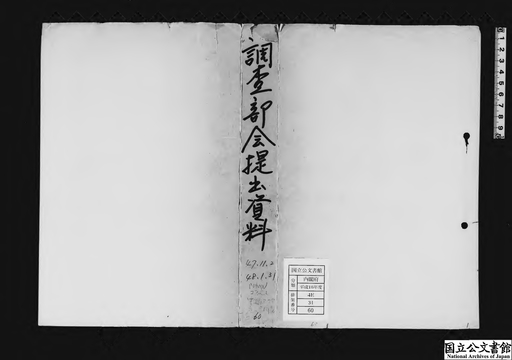 調査部会提出資料
47.11.2
48.1.31
60
国立公文書館
分類
内閣府
平成16年度
排架番号
4E
31
60
1 2 3 4 5 6 7 8 9
国立公文書館
National Archives of Japan